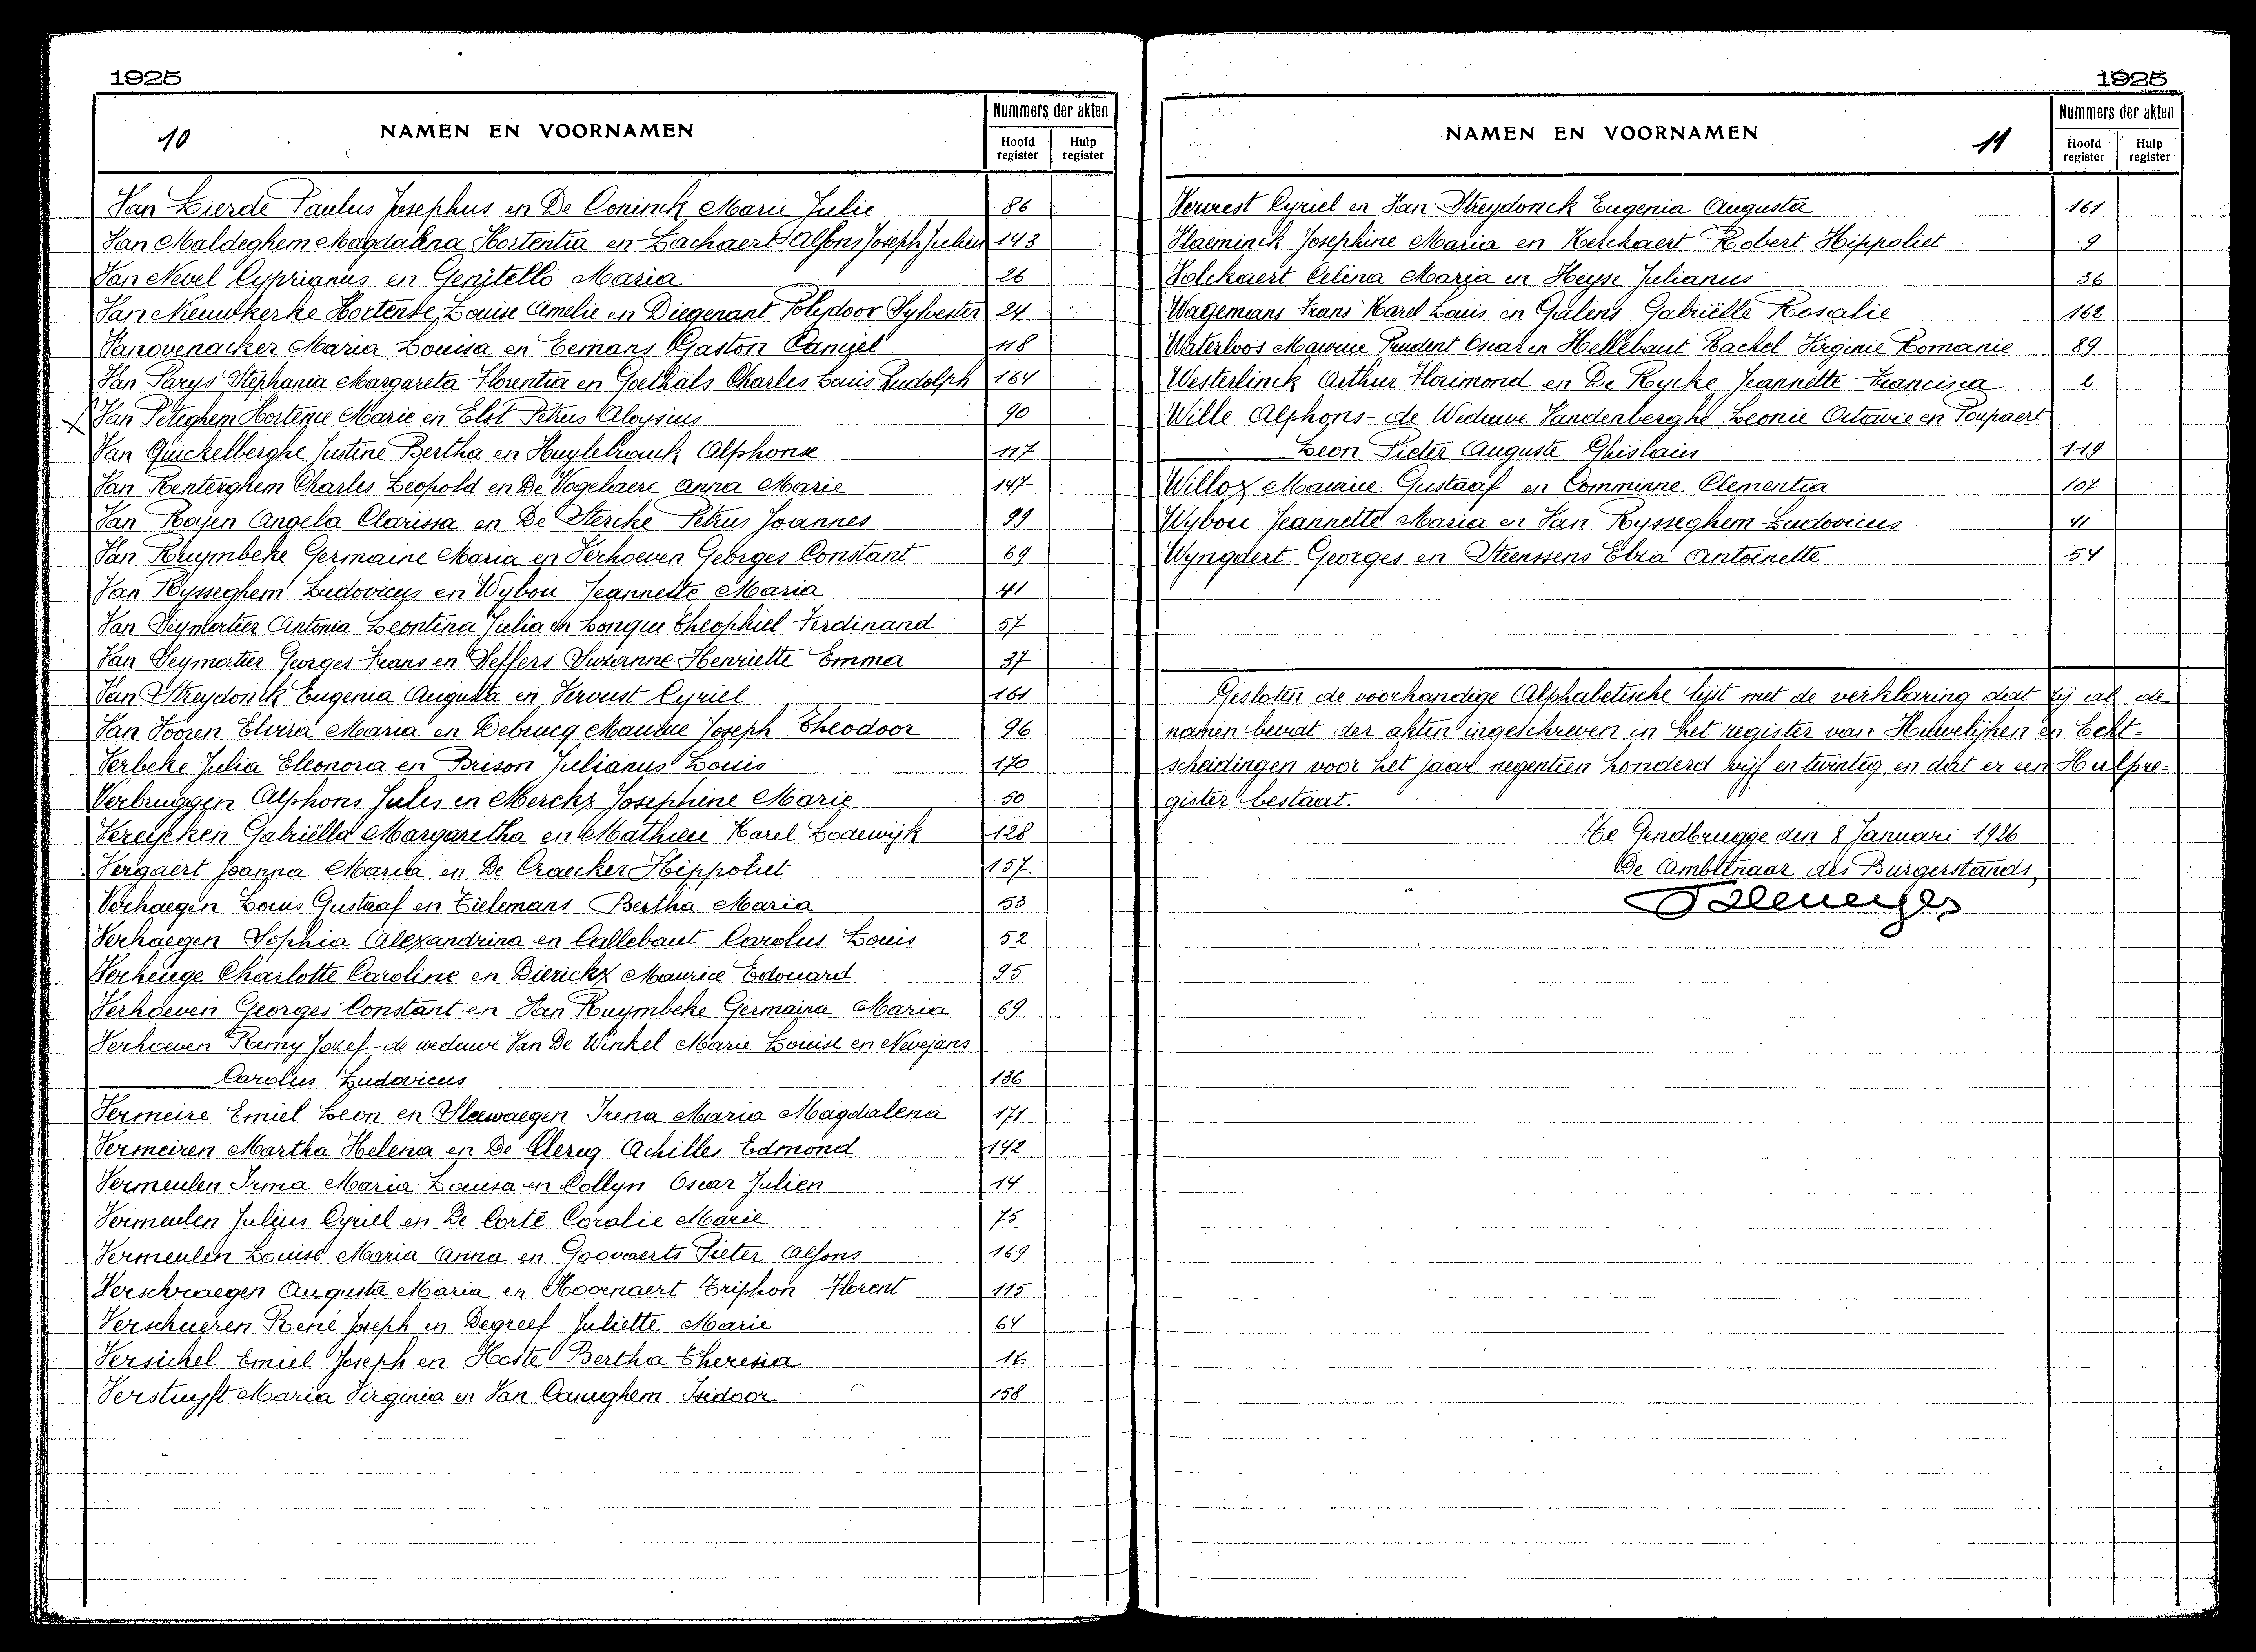 1925
10
NAMEN EN VOORNAMEN
Nummers der akten
Hoofd register
Hulp register
Van Lierde Paulus Josephus en De Coninck Marie Julie 86
Van Maldeghem Magdalena Hortentia en Lachaert Alfons Joseph Julien 143
Van Nevel Cyprianus en Genitello Maria 26
Van Nieuwkerke Hortense Louise Amelie en Diegenant Polydoor Sylvester 24
Vanovenacker Maria Louisa en Eemans Gaston Daniel 118
Van Parys Stephania Margareta Florentia en Goethals Charles Louis Rudolph 164
Van Peteghem Hortense Marie en Elst Petrus Aloysius 90
Van Quickelberghe Justine Bertha en Huylebrouck Alphonse 117
Van Renterghem Charles Leopold en De Vogelaere Anna Marie 147
Van Royen Angela Clarissa en De Stercke Petrus Joannes 99
Van Ruymbeke Germaine Maria en Verhoeven Georges Constant 69
Van Rysseghem Ludovicus en Wybou Jeannette Maria 41
Van Seymortier Antonia Leontina Julia en Longue Theophiel Ferdinand 57
Van Seymortier Georges Frans en Seffers Suzanne Henriette Emma 37
Van Streydonck Eugenia Augusta en Vervust Cyriel 161
Van Vooren Elvira Maria en Debrucq Maurice Joseph Theodoor 96
Verbeke Julia Eleonora en Brison Julianus Louis 170
Verbruggen Alphons Jules en Merckx Josephine Marie 50
Vereijcken Gabriëlla Margaretha en Mathieu Karel Lodewijk 128
Vergaert Joanna Maria en De Craecker Hippoliet 157
Verhaegen Louis Gustaaf en Tielemans Bertha Maria 53
Verhaegen Sophia Alexandrina en Callebaut Carolus Louis 52
Verheuge Charlotte Caroline en Dierickx Maurice Edouard 95
Verhoeven Georges Constant en Van Ruymbeke Germaina Maria 69
Verhoeven Remy Jozef - de weduwe Van De Winkel Marie Louise en Nevejans
Carolus Ludovicus 136
Vermeire Emiel Leon en Sleewaegen Irena Maria Magdalena 171
Vermeiren Martha Helena en De Clercq Achilles Edmond 142
Vermeulen Irma Maria Louisa en Collyn Oscar Julien 14
Vermeulen Julius Cyriel en De Corte Coralie Marie 75
Vermeulen Louise Maria Anna en Goovaerts Pieter Alfons 169
Verschraegen Augusta Maria en Hovenaert Triphon Florent 115
Verschueren René Joseph en Degreef Juliette Marie 64
Versichel Emiel Joseph en Hoste Bertha Theresia 16
Verstuyft Maria Virginia en Van Caneghem Isidoor 158
1925
NAMEN EN VOORNAMEN
11
Nummers der akten
Hoofd register
Hulp register
Vervrest Cyriel en Van Streydonck Eugenia Augusta 161
Vlaeminck Josephine Maria en Kerckaert Robert Hippoliet 9
Volckaert Celina Maria en Heyse Julianus 36
Wagemans Frans Karel Louis en Galens Gabriëlle Rosalie 162
Waterloos Maurice Prudent Oscar en Hellebaut Rachel Virginie Romanie 89
Westerlinck Arthur Florimond en De Rycke Jeannette Francisca 2
Wille Alphons - de Weduwe Vandenberghe Leonie Octavie en Poupaert
Leon Pieter Auguste Ghislain 119
Willox Maurice Gustaaf en Comminne Clementia 107
Wybou Jeannette Maria en Van Rysseghem Ludovicus 41
Wyngaert Georges en Steenssens Elza Antoinette 54
Gesloten de voorhandige Alphabetische lijst met de verklaring dat zij al de
namen bevat der akten ingeschreven in het register van Huwelijken en Echt-
scheidingen voor het jaar negentien honderd vijf en twintig, en dat er een Hulpre-
gister bestaat.
Te Gendbrugge den 8 Januari 1926
De Ambtenaar des Burgerstands,